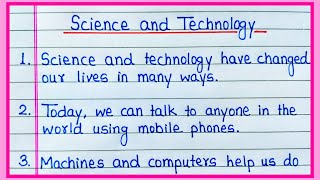 Science and Technology
1. Science and technology have changed
our lives in many ways.
2. Today, we can talk to anyone in the
world using mobile phones.
3. Machines and computers help us do